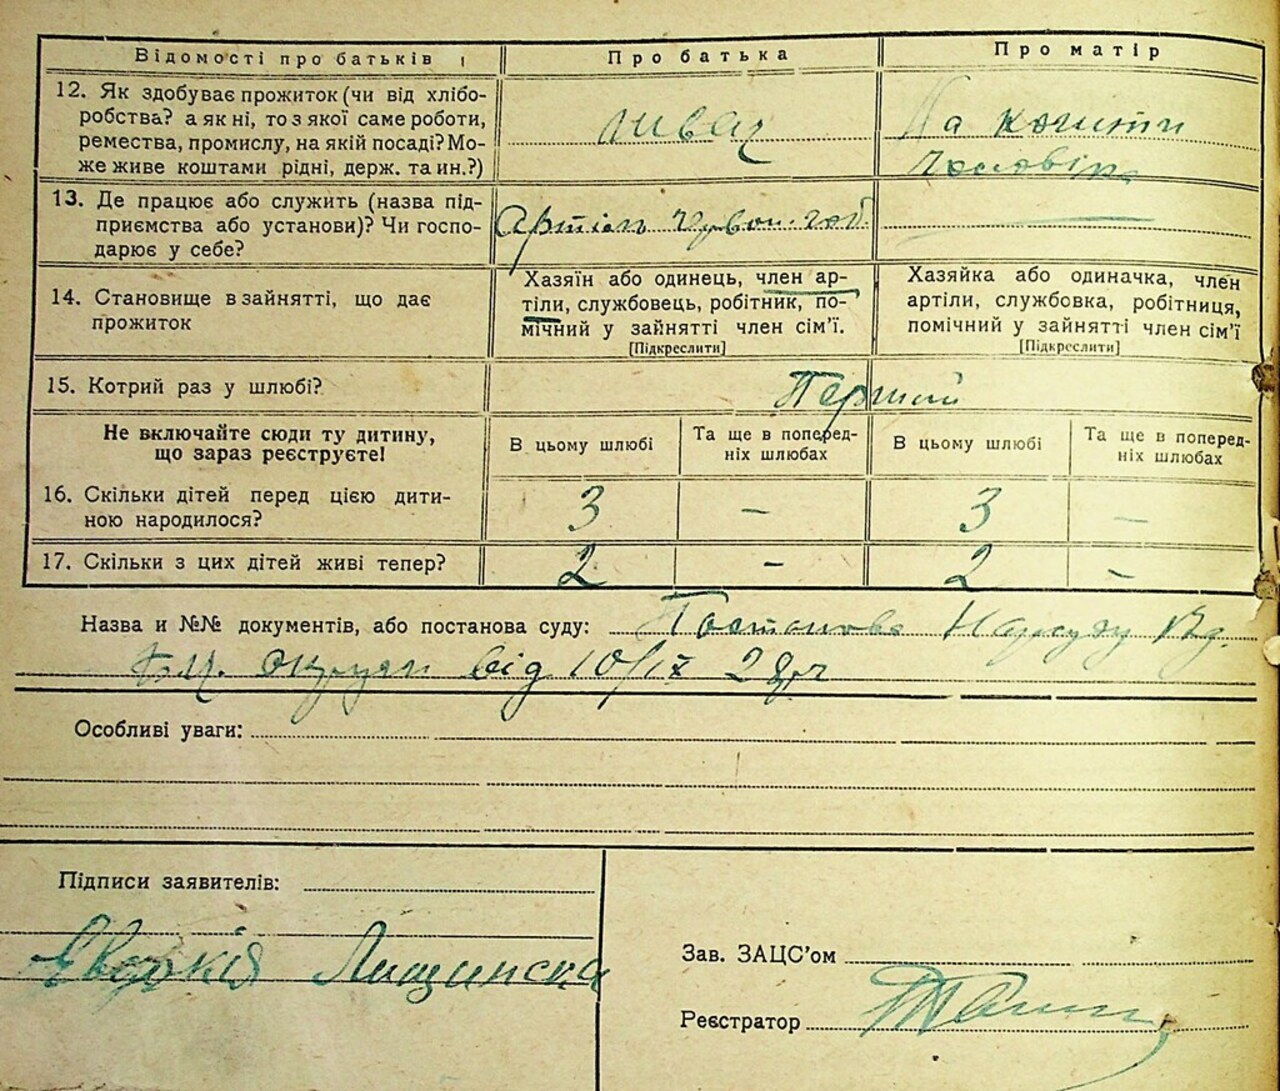 Відомості про батьків
Про батька
Про матір
12. Як здобуває прожиток (чи від хлібо-
робства? а як ні, то з якої саме роботи,
ремества, промислу, на якій посаді? Мо-
же живе коштами рідні, держ. та ин.?)
швач
На кошти
чоловіка
13. Де працює або служить (назва під-
приємства або установи)? Чи госпо-
дарює у себе?
Артіль Червон.
14. Становище в зайнятті, що дає
прожиток
Хазяїн або одинець, член ар-
тіли, службовець, робітник, по-
мічний у зайнятті член сім'ї.
[Підкреслити]
Хазяйка або одиначка, член
артіли, службовка, робітниця,
помічний у зайнятті член сім'ї
[Підкреслити]
15. Котрий раз у шлюбі?
Перший
Не включайте сюди ту дитину,
що зараз реєструєте!
В цьому шлюбі
Та ще в поперед-
ніх шлюбах
В цьому шлюбі
Та ще в поперед-
ніх шлюбах
16. Скільки дітей перед цією дити-
ною народилося?
3 – 3 –
17. Скільки з цих дітей живі тепер?
2 – 2 –
Назва и №№ документів, або постанова суду: Постанова Нарсуду
округи від 10/IX 28р
Особливі уваги:
Підписи заявителів:
Лищинська
Зав. ЗАЦС'ом
Реєстратор